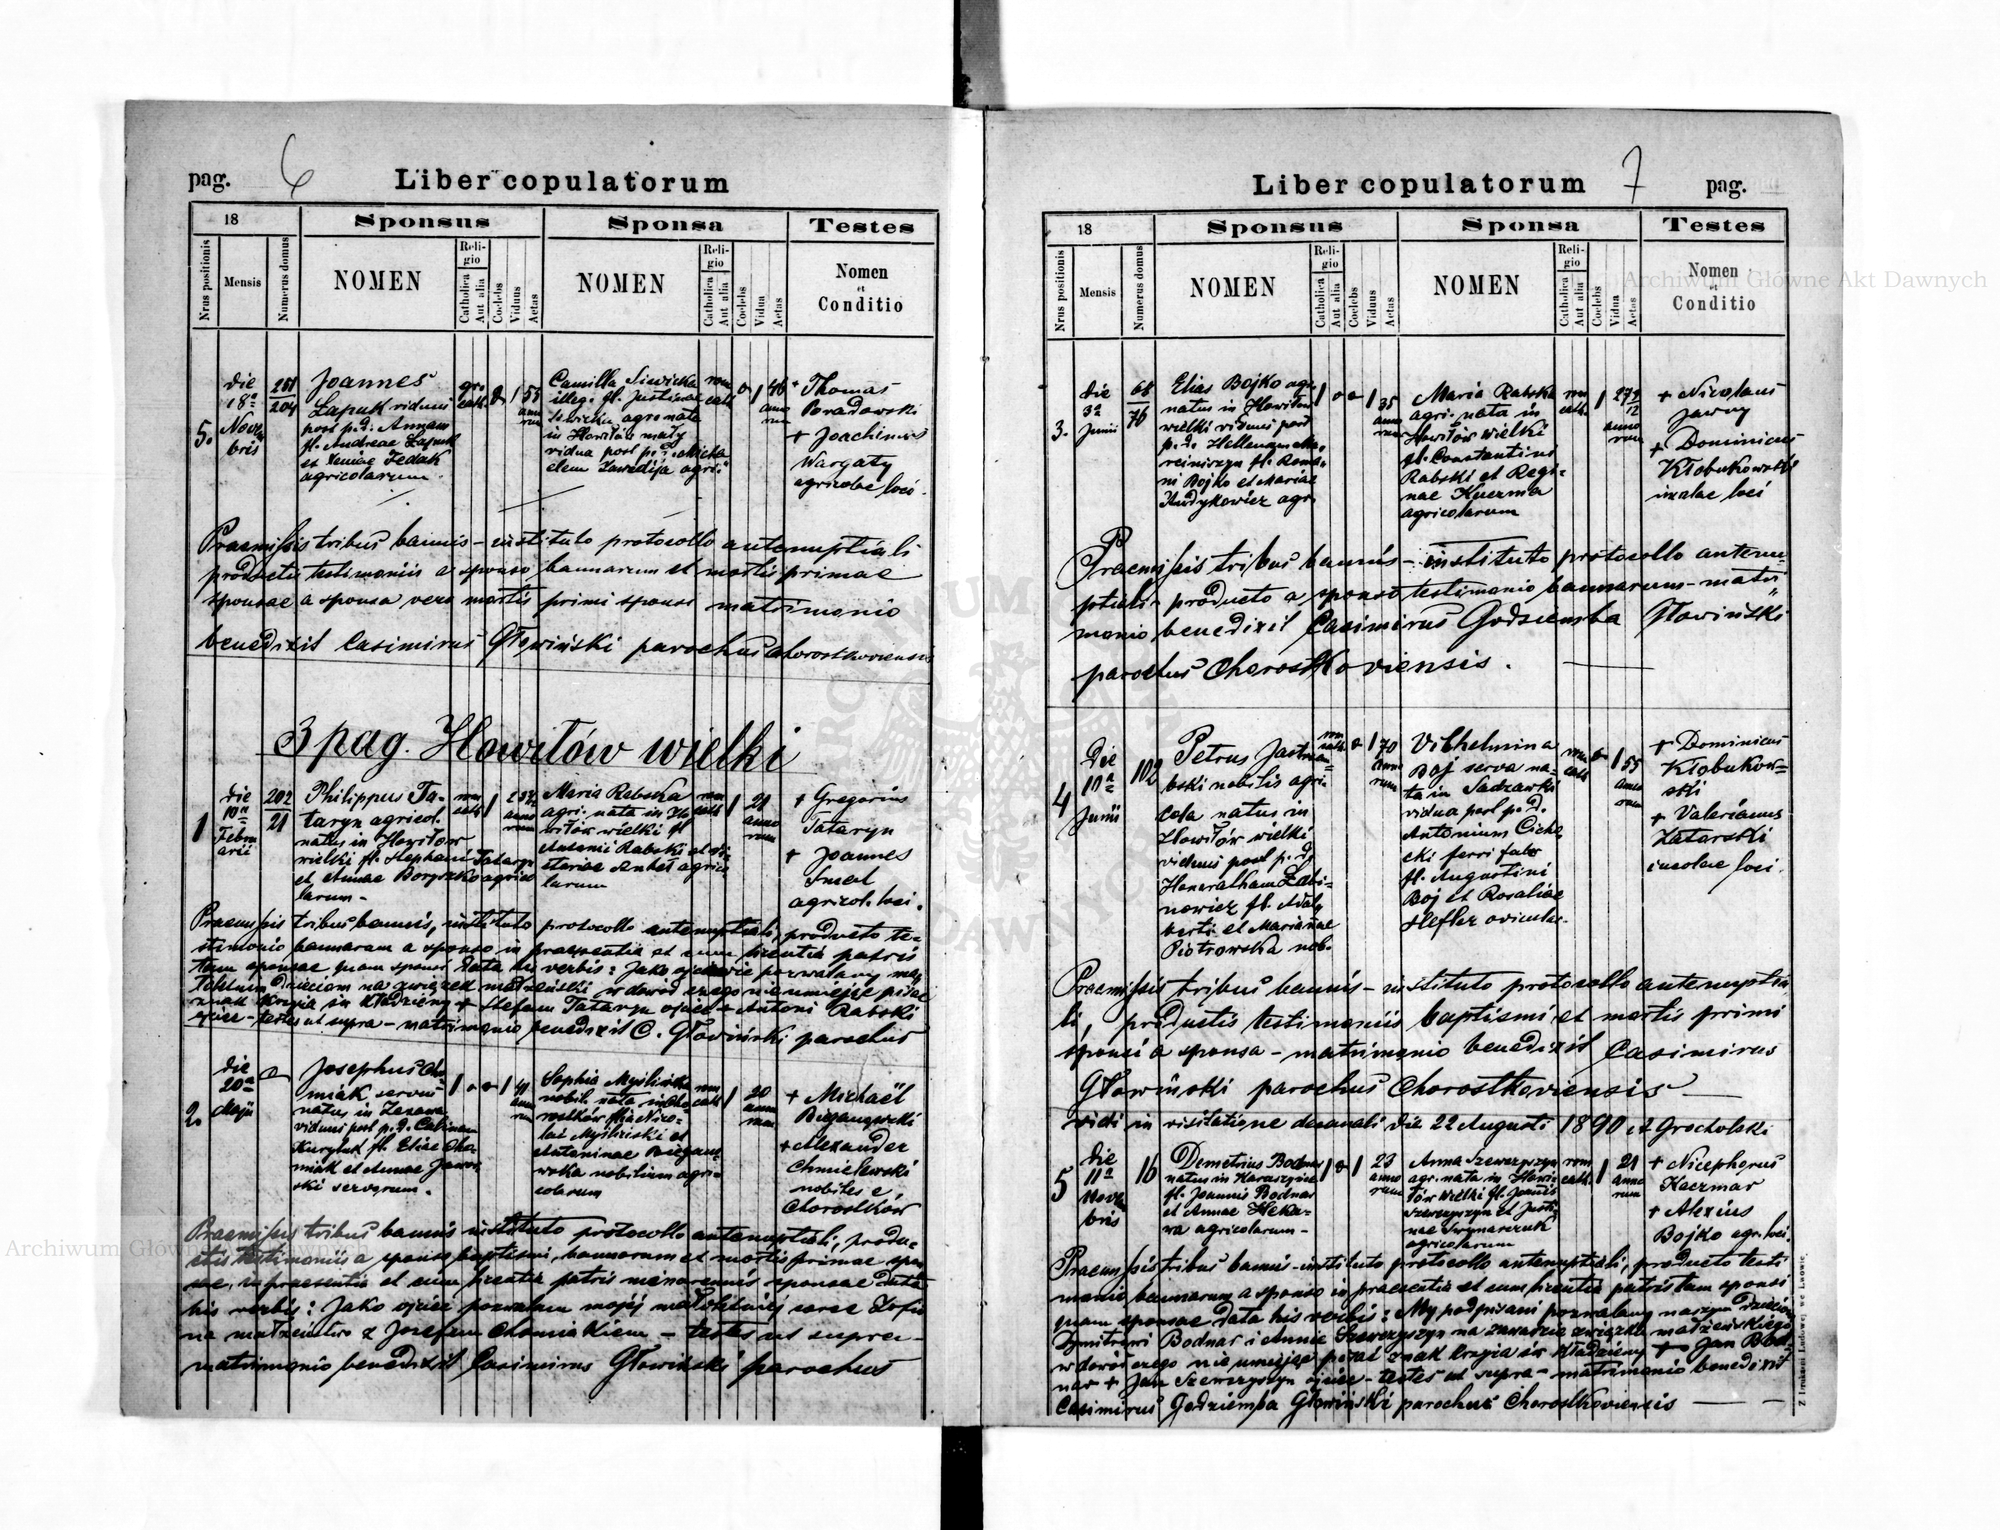 pag. 6 Liber copulatorum
18 Sponsus Sponsa Testes
Nrus positionis Mensis Numerus domus NOMEN Religio Catholica Aut alia Coelebs Viduus Aetas NOMEN Religio Catholica Aut alia Coelebs Vidua Aetas Nomen et Conditio
5.
die
18a
Novem
bris
261
204
Joannes
Łapuk viduus
post p. d. Annam
fl. Andreae Łapuk
et Xeniae Fedak
agricolarum.
gr.
cath.
1 55
anno
rum
Camilla Siwicka
illeg. fl. Justinae
Siwicka agr. nata
in Howiłów mały
vidua post p. d. Micha
elem Zawadija agri.
rom
cath
1 46
anno
rum
+ Thomas
Boradowski
+ Joachimus
Wargaty
agricolae loci.
Praemissis tribus bannis - instituto protocollo antenuptiali
productis testimoniis a sponso bannorum et mortis primae
sponsae a sponsa vero mortis primi sponsi matrimonio
benedixit Casimirus Głowiński parochus Chorostkoviensis
3 pag. Howiłów wielki
1
die
10a
Febru
arii
202
21
Philippus Ta-
taryn agricol.
natus in Howiłów
wielki fl. Stephani Tataryn
et Annae Boryszko agrico
larum -
rom
cath
1
anno
rum
Maria Rabska
agri. nata in Ho
wiłów wielki fl.
Antonii Rabski et Vi
ctoriae Anheł agrico
larum
rom
cath
1
21
anno
rum
+ Gregorius
Tataryn
+ Joannes
agricol. loci.
Praemissis tribus bannis, instituto protocollo antenuptiali, producto te-
stimonio bannorum a sponso in praesentia et cum licentia patris
tam sponsae quam sponsi data his verbis: Jako ojcowie pozwalamy mał
letnim dzieciom na związek małżeński w dowód czego nie umiejąc pisać
znak krzyża św. kładziemy + Stefan Tataryn ojciec + Antoni Rabski
ojciec - testes ut supra - matrimonio benedixit C. Głowiński parochus
2.
die
20a
Maji
Josephus Cho
miak servus
natus in
viduus post p. d.
Kuryłuk fl. Eliae Cho
miak et Annae Jawor
ski servorum.
1 41
anno
rum
Sophia Myślicka
nobil. nata in Cho
rostków filia Nico-
lai Myślicki et
Antoninae Biegano
wska nobilium agri-
colarum
rom
cath
1
20
anno
rum
+ Michaël
Bieganowski
+ Alexander
Chmielewski
nobiles e
Chorostków
Praemissis tribus bannis instituto protocollo antenuptiali, produ-
ctis testimoniis a sponso baptismi, bannorum et mortis primae spon
sae, in praesentia et cum licentia patris minorennis sponsae data
his verbis: Jako ojciec pozwalam mojéj małoletniéj córce Zofii
na małżeństwo z Józefem Chomiakiem - testes ut supra -
matrimonio benedixit Casimirus Głowiński parochus
Liber copulatorum 7 pag.
18 Sponsus Sponsa Testes
Nrus positionis Mensis Numerus domus NOMEN Religio Catholica Aut alia Coelebs Viduus Aetas NOMEN Religio Catholica Aut alia Coelebs Vidua Aetas Nomen et Conditio
3.
die
3a
Junii
68
76
Elias Bojko agr.
natus in Howiłów
wielki viduus post
p. d. Hellenam Ma-
reiniszyn fl. Roma-
ni Bojko et Mariae
Hudykowicz agr.
1
1 35
anno
rum
Maria Rabska
agri. nata in
Howiłów wielki
fl. Constantini
Rabski et Regi-
nae Kuzma
agricolarum
rom
cath.
1
27 9/12
anno
rum
+ Nicolaus
Jawny
+ Dominicus
Kłobukowski
incolae loci
Praemissis tribus bannis - instituto protocollo antenu-
ptiali - producto a sponso testimonio bannorum - matri
monio benedixit Casimirus Godziemba Głowiński
parochus Chorostkoviensis.
4
die
10a
Junii
102
Petrus Jastrzem-
bski nobilis agri-
cola natus in
Howiłów wielki
viduus post p. d.
Honoratham Łabi-
nowicz fl. Adal
berti et Mariannae
Piotrowska nob.
rom
cath
1 70
anno
rum
Vilhelmina
Boj serva na-
ta in Sadzawki
vidua post p. d.
Antonium Cicho
cki ferri fabr
fl. Augustini
Boj et Rosaliae
Hefler
rom
cath
1 55
anno
rum
+ Dominicus
Kłobukow-
ski
+ Valerianus
Zatarski
incolae loci.
Praemissis tribus bannis - instituto protocollo antenuptia
li, productis testimoniis baptismi et mortis primi
sponsi a sponsa - matrimonio benedixit Casimirus
Głowiński parochus Chorostkoviensis
vidi in visitatione decanali die 22 Augusti 1890 Grocholski
5
die
11a
Novem
bris
16
Demetrius Bodnar
natus in Karaszyńce
fl. Joannis Bodnar
et Annae Heka-
wa agricolarum -
1
1
23
anno
rum
Anna Szewczyszyn
agr. nata in Howi-
łów wielki fl. Joannis
Szewczyszyn et Justi
nae
agricolarum
rom
cath.
1
21
anno
rum
+ Nicephorus
Kaczmar
+ Alexius
Bojko agr. loci.
Praemissis tribus bannis - instituto protocollo antenuptiali, producto testi
monio bannorum a sponso in praesentia et cum licentia patris tam sponsi
quam sponsae data his verbis: My podpisani pozwalamy naszym dzieciom
Dymitrowi Bodnar i Annie Szewczyszyn na zawarcie związku małżeńskiego
w dowód czego nie umiejąc pisać znak krzyża św. kładziemy + Jan Bod
nar + Jan Szewczyszyn ojciec - testes ut supra - matrimonio benedixit
Casimirus Godziemba Głowiński parochus Chorostkoviensis
Z Drukarni Ludowej we Lwowie.
Archiwum Główne Akt Dawnych
Archiwum Główne Akt Dawnych
ARCHIWUM GŁÓWNE AKT DAWNYCH